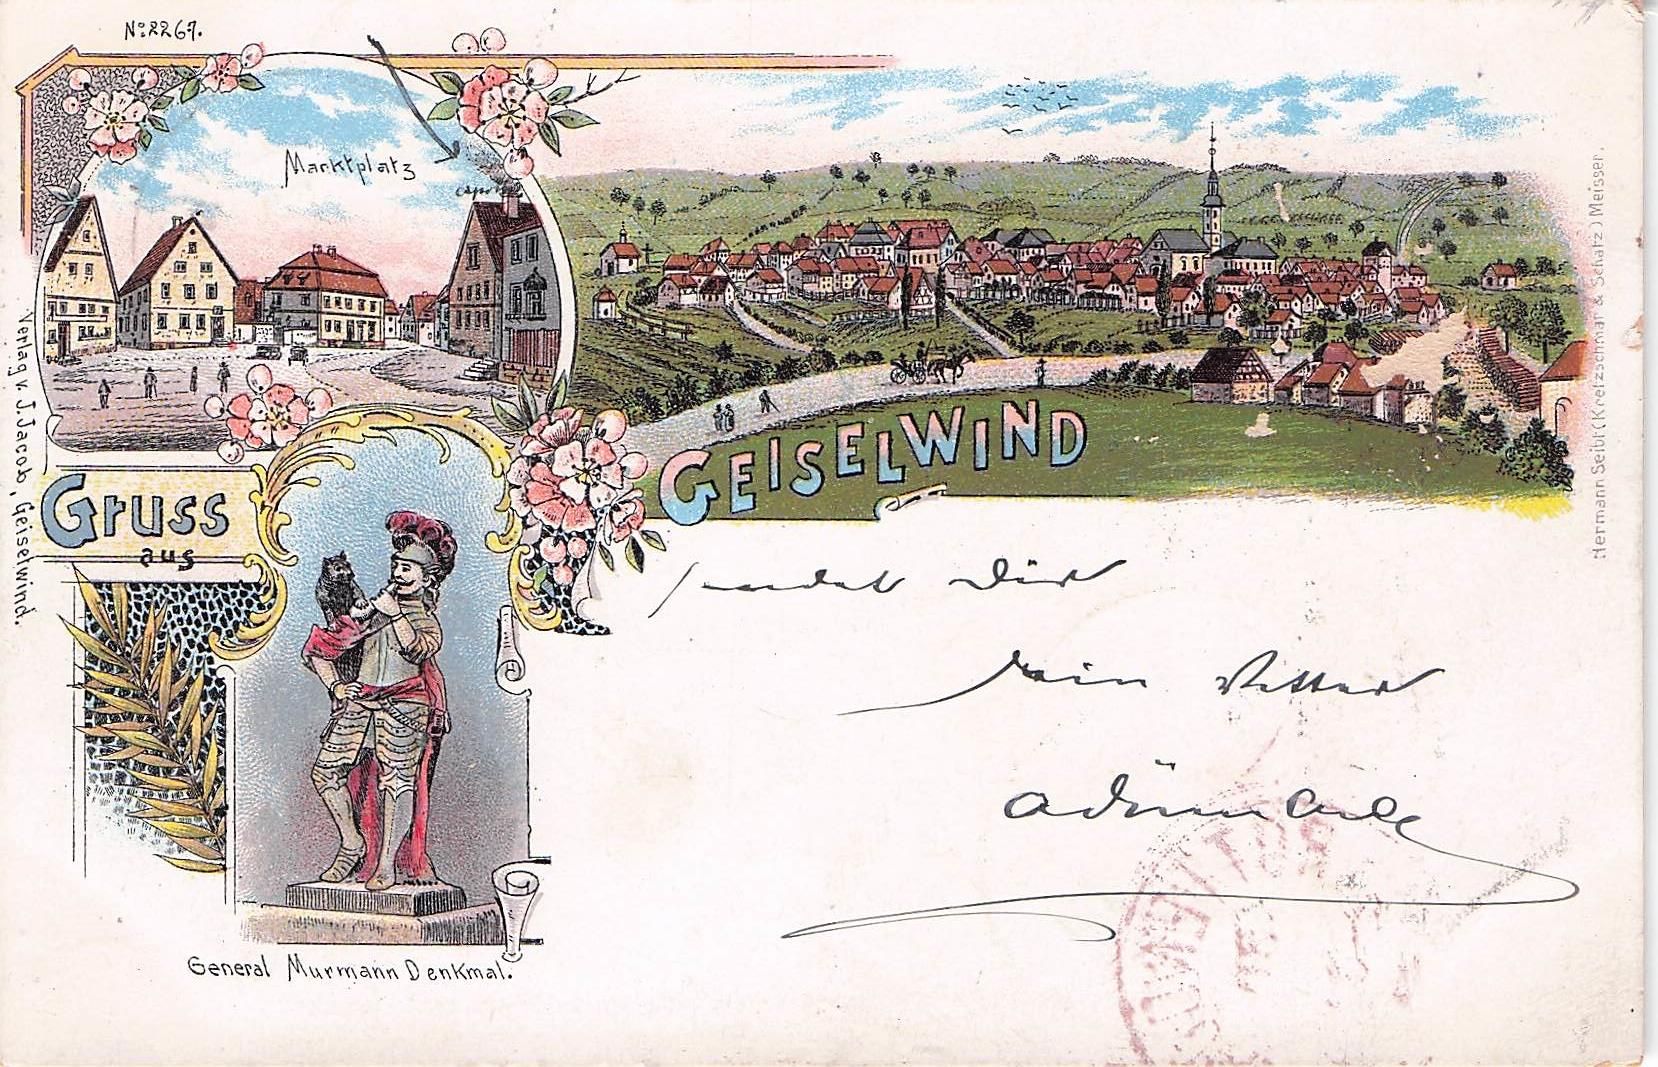 No: 2267.
Marktplatz
GEISELWIND
Gruss
aus
General Murmann Denkmal.
Verlag v. J. Jacob, Geiselwind.
Hermann Seibt (Kretzschmar & Schatz) Meissen.
sendet Dir
Dein Vetter